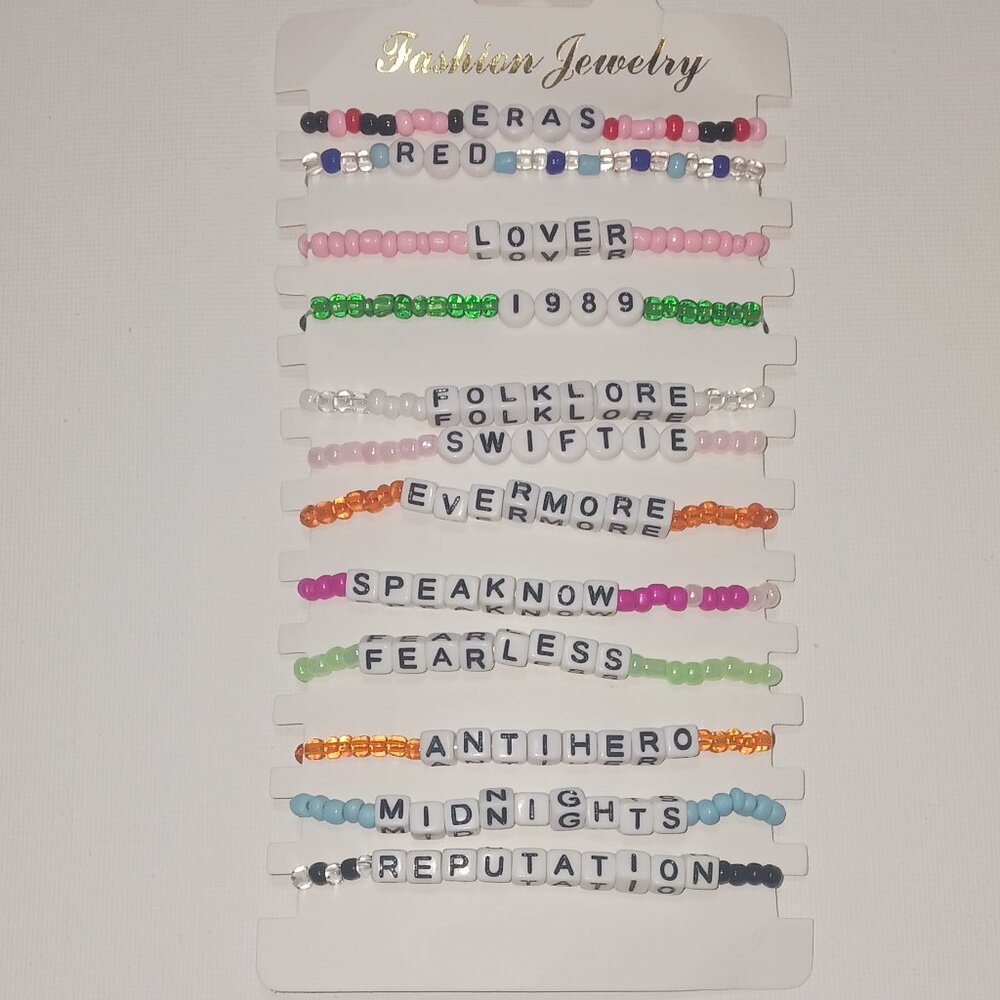 Fashion Jewelry
ERAS
RED
LOVER
1989
FOLKLORE
SWIFTIE
EVERMORE
SPEAKNOW
FEARLESS
ANTIHERO
MIDNIGHTS
REPUTATION